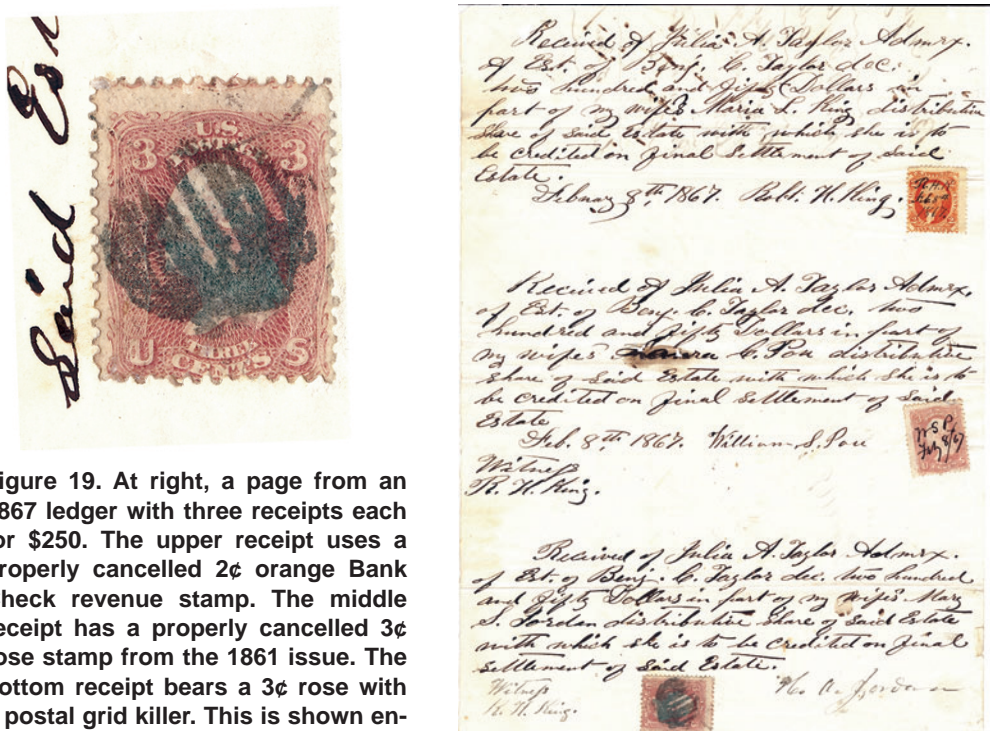 Said Es
U.S.
3 POSTAGE 3
THREE
U CENTS S
igure 19. At right, a page from an
867 ledger with three receipts each
or $250. The upper receipt uses a
roperly cancelled 2¢ orange Bank
heck revenue stamp. The middle
eceipt has a properly cancelled 3¢
ose stamp from the 1861 issue. The
ottom receipt bears a 3¢ rose with
postal grid killer. This is shown en-
Received of Julia A. Taylor Admrx.
of Est. of Benj. C. Taylor dec.
two hundred and fifty Dollars in
part of my wife's Maria L. King distributive
share of said Estate with which she is to
be credited on final settlement of said
Estate.
Febuay 8th 1867. Robt. H. King.
Received of Julia A. Taylor Admrx.
of Est. of Benj. C. Taylor dec. two
hundred and fifty Dollars in part of
my wife's C. Pou distributive
share of said Estate with which she is to
be credited on final settlement of said
Estate
Feb. 8th 1867. William S. Pou
W S P
Feb 8/67
Witness
R. H. King.
Received of Julia A. Taylor Admrx.
of Est. of Benj. C. Taylor dec. two hundred
and fifty Dollars in part of my wife's Mary
S. Jordan distributive share of said Estate
with which she is to be credited on final
settlement of said Estate.
Witness
R. H. King.
Jordan